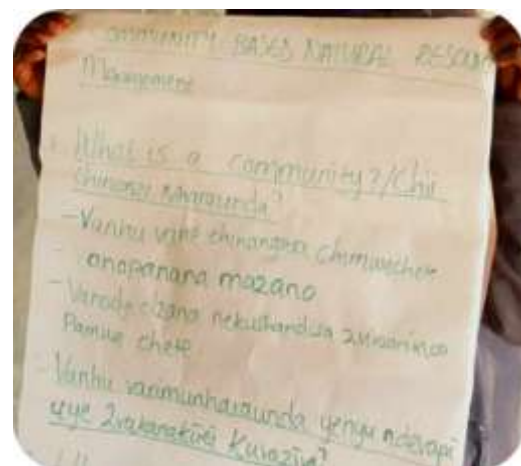 COMMUNITY-BASED NATURAL RESOUR
Management
What is a community?/Chii
chinonzi nharaunda?
- Vanhu vane chinangwa chimwechete
anopanana mazano
- Vanodyidzana nekushandisa zviwanikwa
Pamwe chete
- Vanhu varimunharaunda yenyu ndevapi
uye Zvakanakirei Kuvaziva?